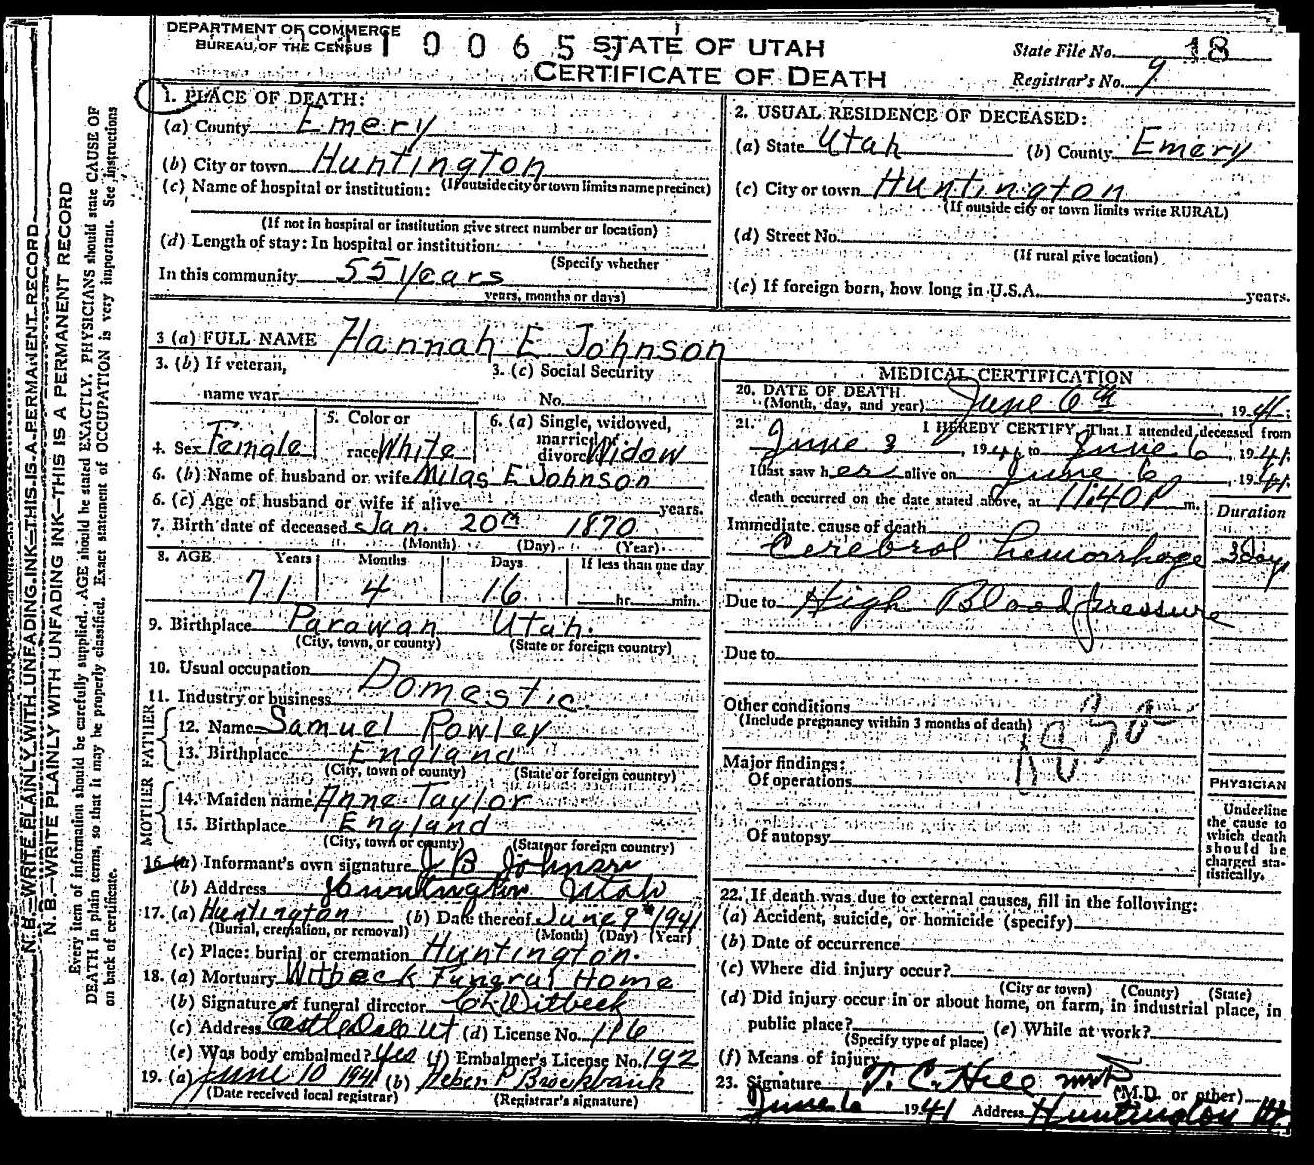 DEPARTMENT OF COMMERCE
BUREAU OF THE CENSUS
1 1 0 0 6 5 9
STATE OF UTAH
CERTIFICATE OF DEATH
State File No. 18
Registrar's No. 9
1. PLACE OF DEATH:
(a) County Emery
(b) City or town Huntington
(If outside city or town limits name precinct)
(c) Name of hospital or institution:
(If not in hospital or institution give street number or location)
(d) Length of stay: In hospital or institution
(Specify whether
In this community 55 years
years, months or days)
2. USUAL RESIDENCE OF DECEASED:
(a) State Utah (b) County Emery
(c) City or town Huntington
(If outside city or town limits write RURAL)
(d) Street No.
(If rural give location)
(e) If foreign born, how long in U.S.A. years.
3 (a) FULL NAME Hannah E Johnson
3. (b) If veteran, name war
3. (c) Social Security No.
4. Sex Female
5. Color or race White
6. (a) Single, widowed, married, divorced Widow
6. (b) Name of husband or wife Milas E Johnson
6. (c) Age of husband or wife if alive years.
7. Birth date of deceased Jan. 20th 1870
(Month) (Day) (Year)
8. AGE Years Months Days If less than one day
71 4 16 hr. min.
9. Birthplace Parawan Utah.
(City, town, or county) (State or foreign country)
10. Usual occupation Domestic
11. Industry or business
FATHER
12. Name Samuel Rowley
13. Birthplace England
(City, town or county) (State or foreign country)
MOTHER
14. Maiden name Anne Taylor
15. Birthplace England
(City, town or county) (State or foreign country)
16. (a) Informant's own signature J B Johnson
(b) Address Huntington Utah
17. (a) Huntington (b) Date thereof June 9th 1941
(Burial, cremation, or removal) (Month) (Day) (Year)
(c) Place: burial or cremation Huntington.
18. (a) Mortuary Witbeck Funeral Home
(b) Signature of funeral director C L Witbeck
(c) Address Castle Dale Ut (d) License No. 116
(e) Was body embalmed? Yes (f) Embalmer's License No. 192
19. (a) June 10 1941 (b) Heber P Brockbank
(Date received local registrar) (Registrar's signature)
MEDICAL CERTIFICATION
20. DATE OF DEATH
(Month, day, and year) June 6th, 1941
21. I HEREBY CERTIFY, That I attended deceased from
June 3, 1941 to June 6, 1941
I last saw her alive on June 6, 1941
death occurred on the date stated above, at 11:40 P m.
Duration
Immediate cause of death
Cerebral hemorrhage 3 days
Due to High Blood pressure
Due to
Other conditions
(Include pregnancy within 3 months of death)
Major findings:
Of operations
Of autopsy
PHYSICIAN
Underline
the cause to
which death
should be
charged sta-
tistically.
22. If death was due to external causes, fill in the following:
(a) Accident, suicide, or homicide (specify)
(b) Date of occurrence
(c) Where did injury occur?
(City or town) (County) (State)
(d) Did injury occur in or about home, on farm, in industrial place, in
public place? (e) While at work?
(Specify type of place)
(f) Means of injury
23. Signature T. C. Hill
(M.D. or other)
June 6 1941 Address Huntington Ut.
N. B.—WRITE PLAINLY WITH UNFADING INK—THIS IS A PERMANENT RECORD
N. B.—WRITE PLAINLY WITH UNFADING INK—THIS IS A PERMANENT RECORD
Every item of information should be carefully supplied. AGE should be stated EXACTLY. PHYSICIANS should state CAUSE OF
DEATH in plain terms, so that it may be properly classified. Exact statement of OCCUPATION is very important. See instructions
on back of certificate.